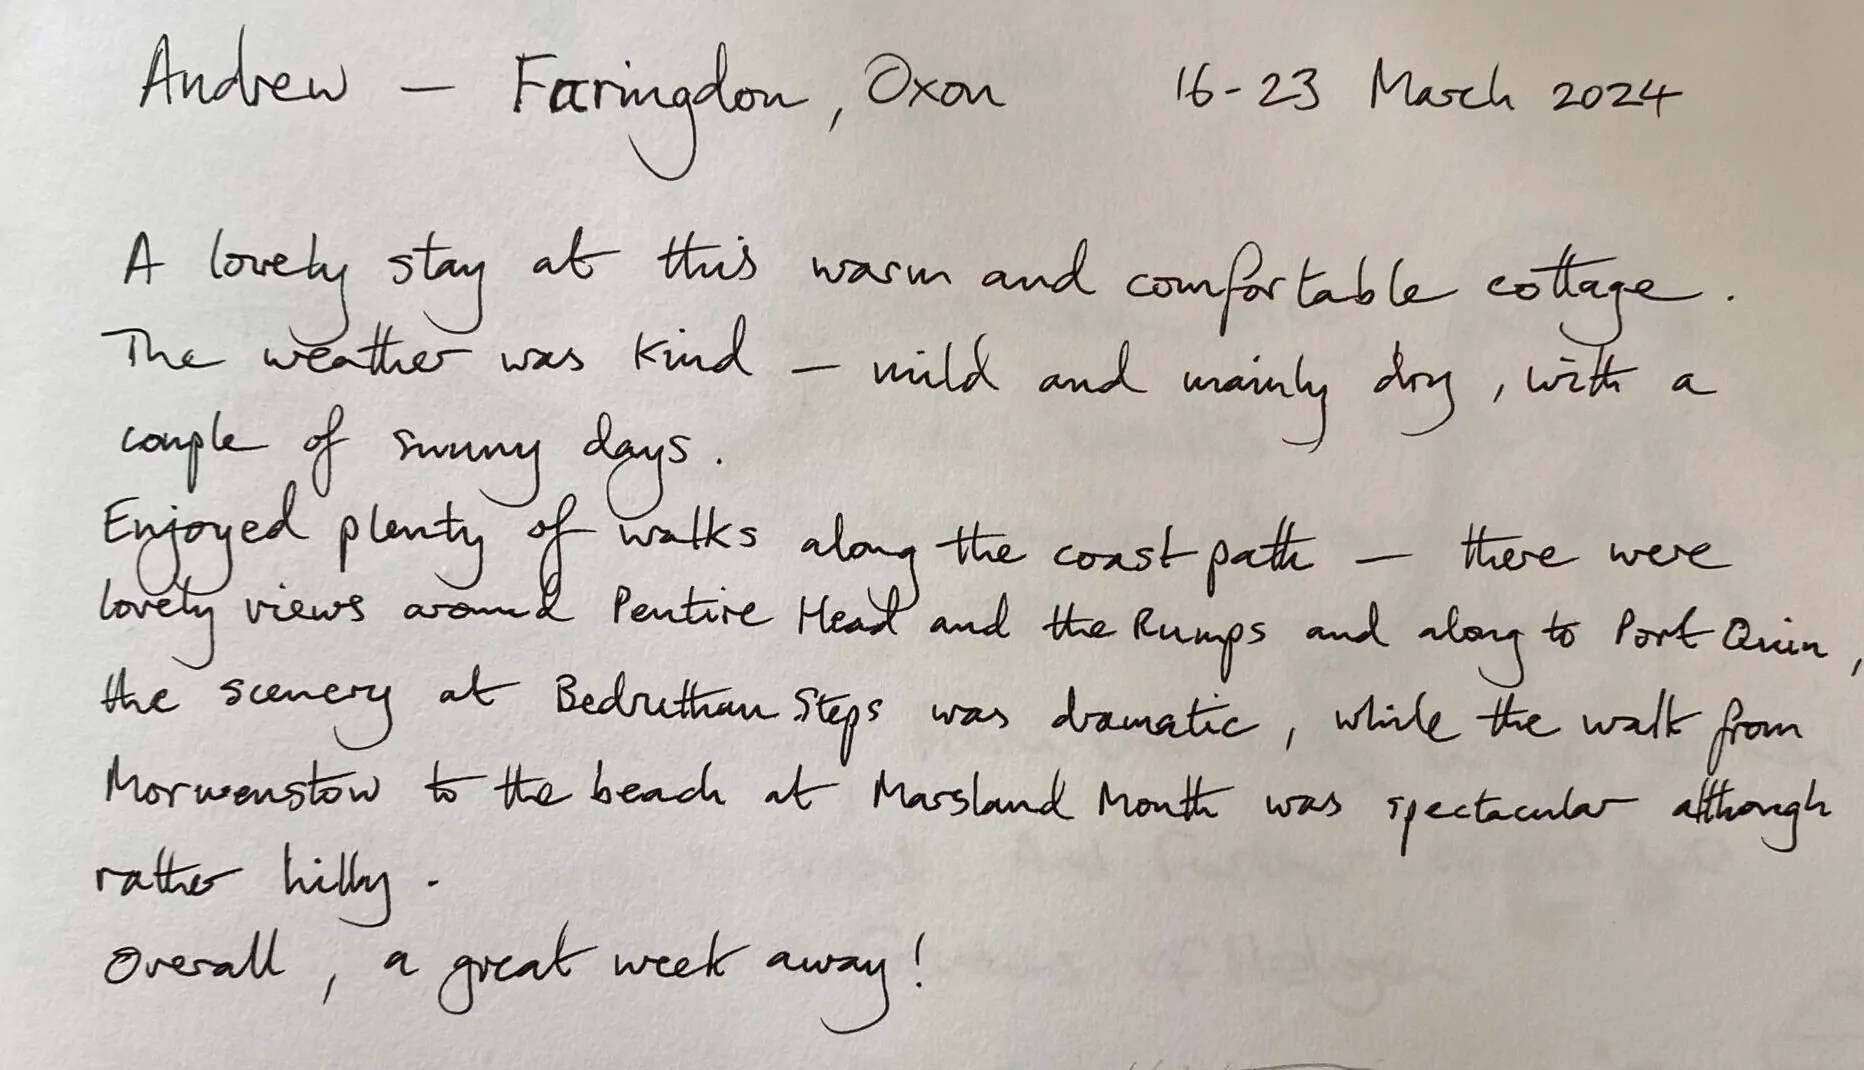 Andrew – Faringdon, Oxon 16-23 March 2024
A lovely stay at this warm and comfortable cottage.
The weather was kind – mild and mainly dry, with a
couple of sunny days.
Enjoyed plenty of walks along the coast path – there were
lovely views around Pentire Head and the Rumps and along to Port Quin,
the scenery at Bedruthan Steps was dramatic, while the walk from
Morwenstow to the beach at Marsland Mouth was spectacular although
rather hilly.
Overall, a great week away!